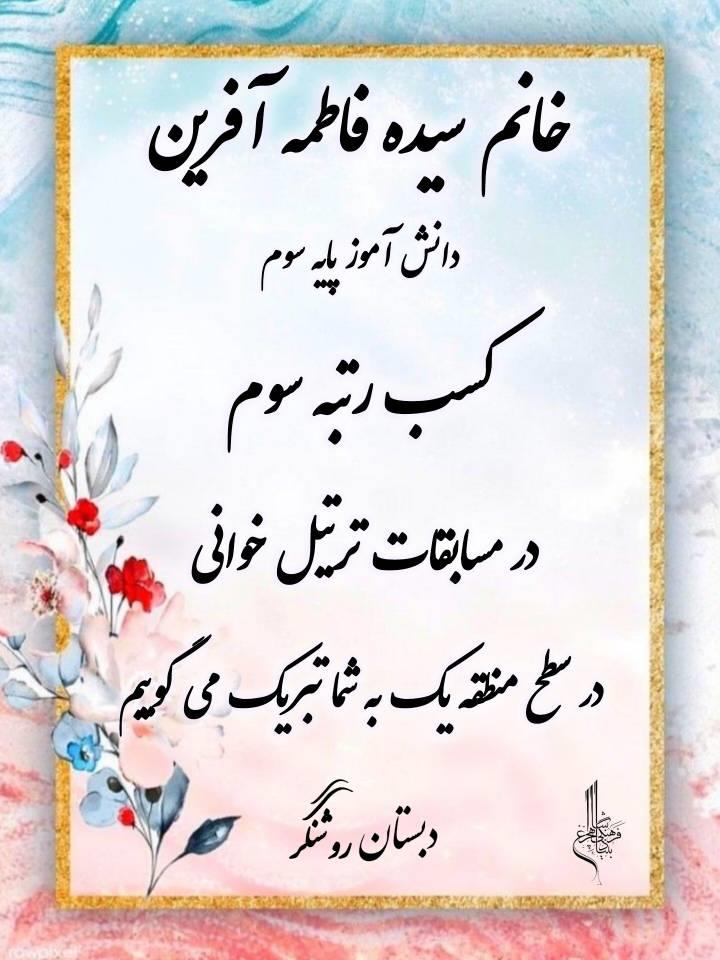 خانم سیده فاطمه آفرین
دانش آموز پایه سوم
کسب رتبه سوم
در مسابقات ترتیل خوانی
در سطح منطقه یک به شما تبریک می گوییم
دبستان روشنگر
rawpixel